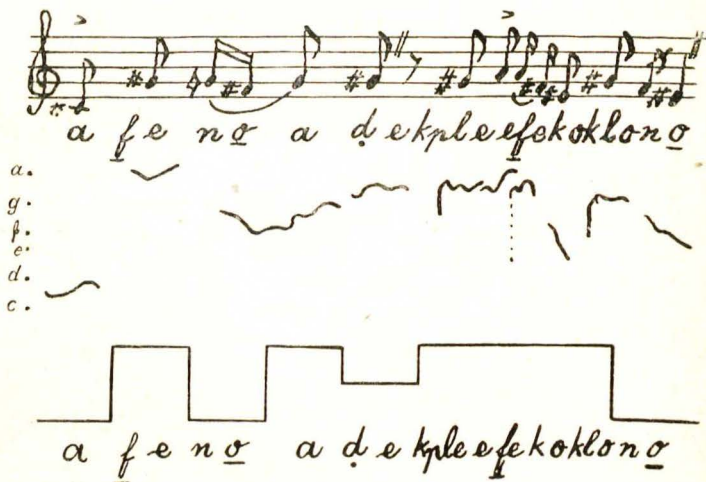 a f̲e no̲ a ḍe kpleef̲ekoklono̲
a.
g.
f.
e.
d.
c.
a f̲e no̲ a ḍe kpleef̲ekoklono̲